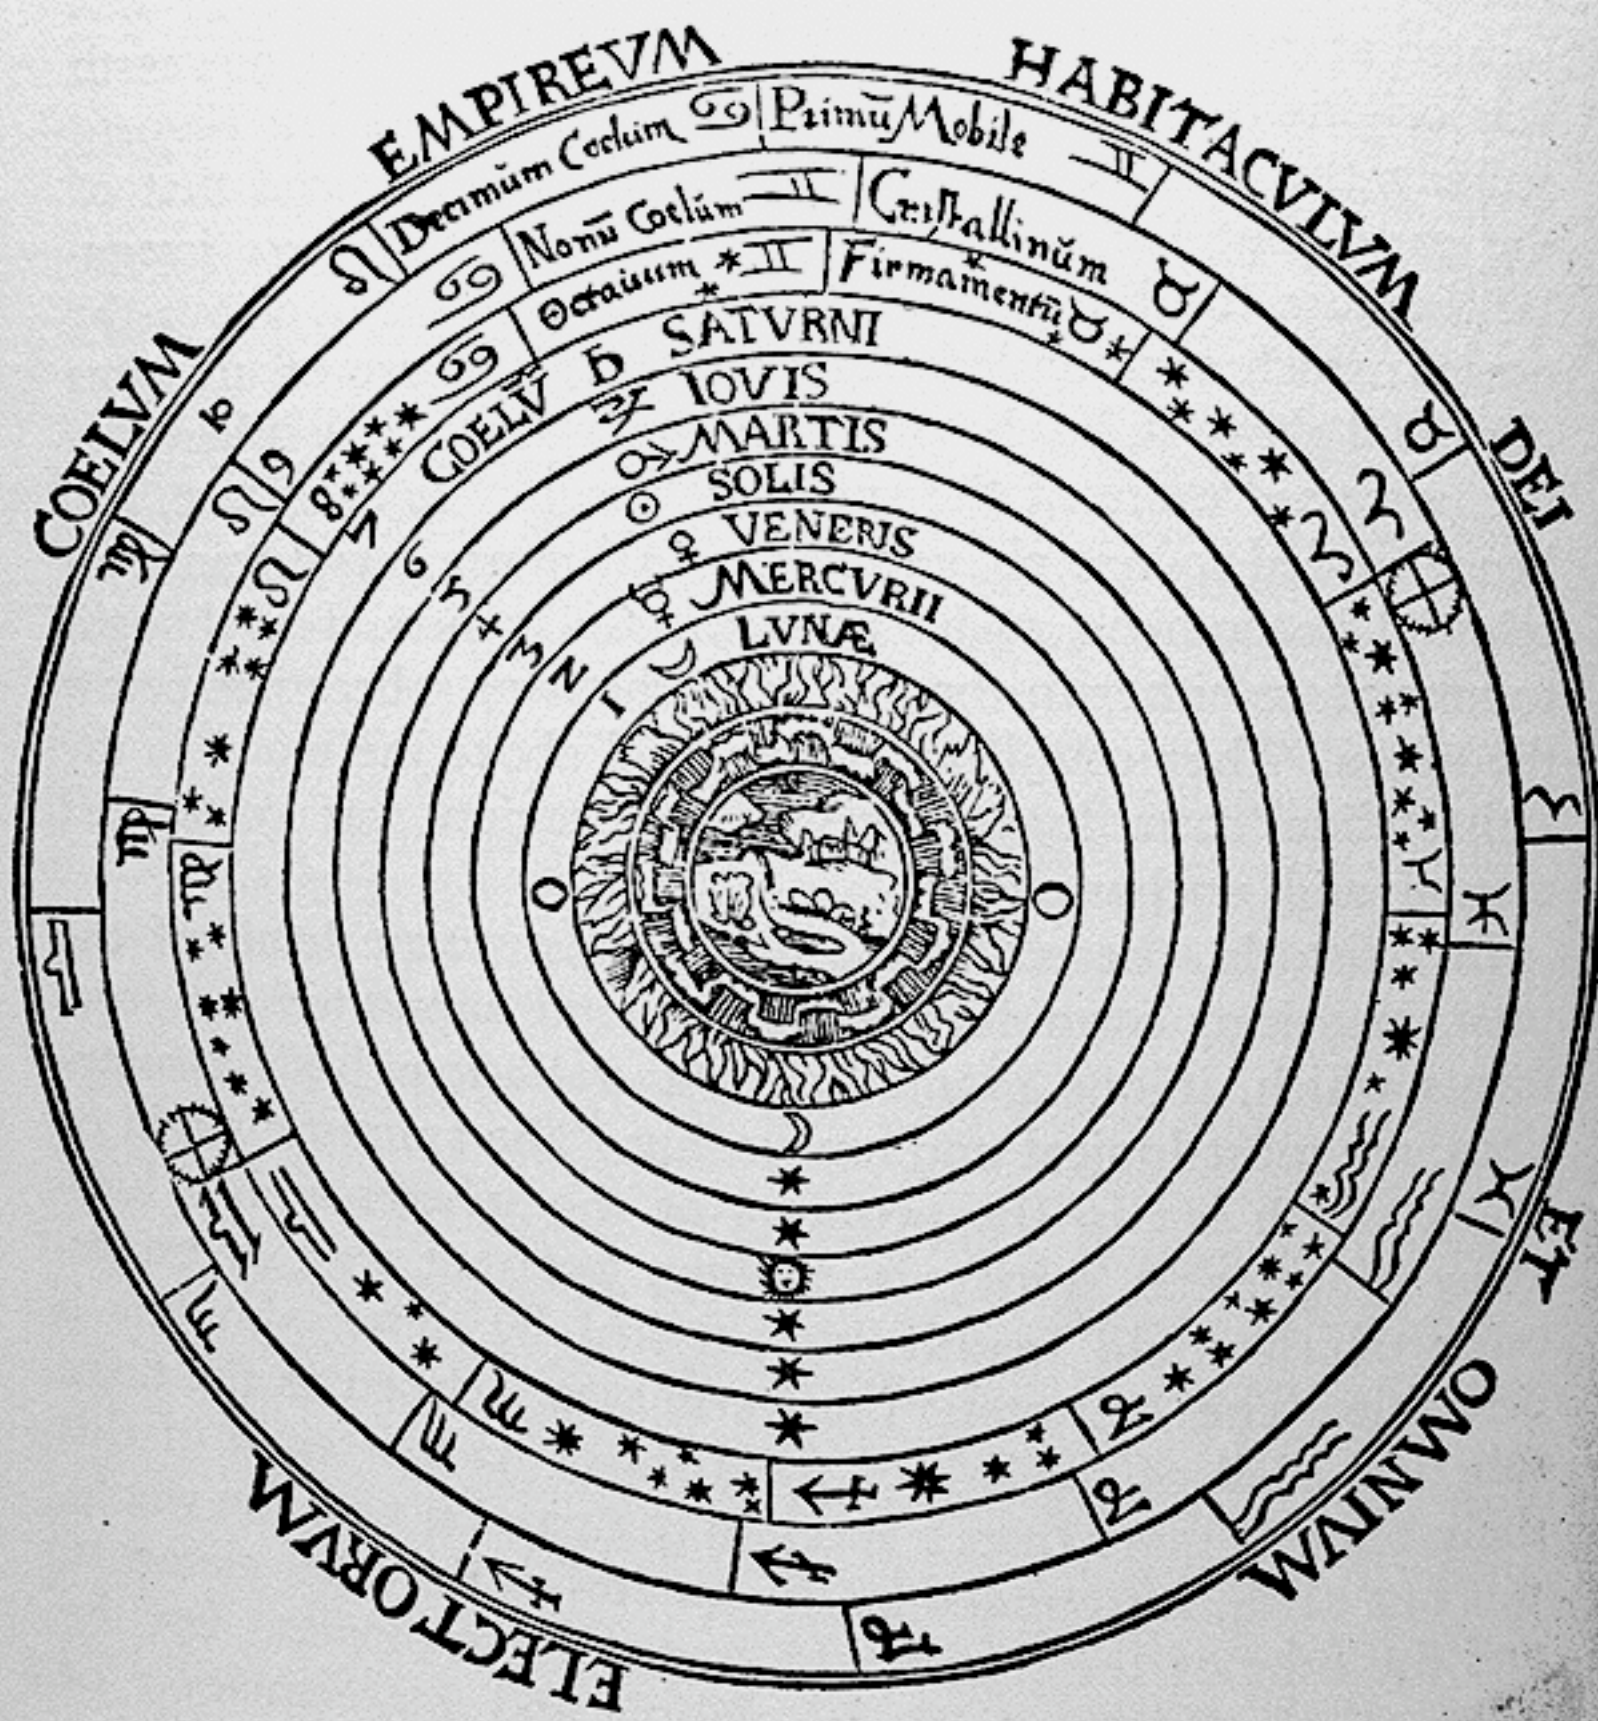 COELVM EMPIREVM HABITACVLVM DEI ET OMNIVM ELECTORVM
Decimũm Coelum Primũ Mobile
10
Nonũ Coelũm Cristallinũm
9
Octauum Firmamentũ
8
COELṼ SATVRNI
7
IOVIS
6
MARTIS
5
SOLIS
4
VENERIS
3
MERCVRII
2
LVNÆ
1